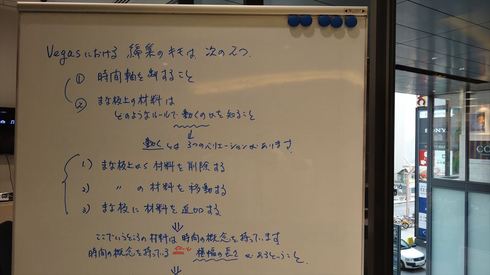 Vegasにおける 編集のキモは 次の2つ.
① 時間軸を制すること
② まな板上の材料は
どのようなルールで動くのかを知ること
動くには 3つのバリエーションがあります
1) まな板から 材料を削除する
2) 〃 の 材料を移動する
3) まな板に材料を追加する
ここでいうところの材料は 時間の概念を持っています
時間の概念を持っている 横幅の長さ があるということ
SONY